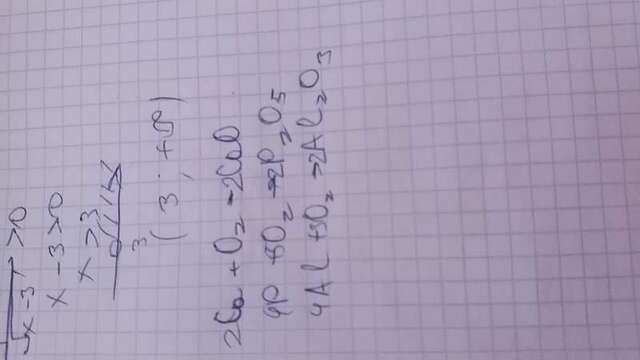 √x-3 >0
x -3>0
x >3
3
(3; +∞)
2Ca + O₂ →2CaO
4P +5O₂ →2P₂O₅
4Al +3O₂ →2Al₂O₃